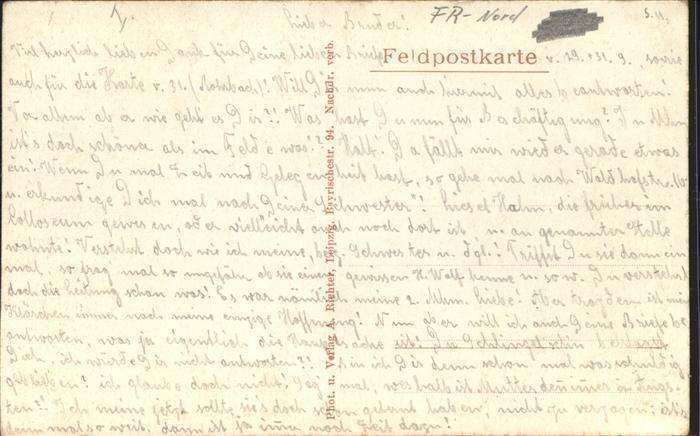 FR-Nord
5.11.
Lieber Bruder!
Feldpostkarte
Viel herzlich lieben Dank für Deine lieben v. 29. + 31. 9., sowie
auch für die Karte v. 31. Will Dir nun auch hiermit alles beantworten!
Vor allem aber wie geht es Dir?! Was hast Du nun für Beschäftigung? In Ulm
ist's doch schöner als im Felde was!? Halt! Da fällt mir wieder gerade etwas
ein! Wenn Du mal Zeit und Gelegenheit hast, so gehe mal nach
u. erkundige Dich mal nach Deiner "Schwester"! Hahn, die früher im
Colloseum gewesen, oder vielleicht auch noch dort ist u. an genannter Stelle
wohnte! Verstehst doch wie ich meine, bez. Schwester u. dgl.! Triffst Du sie dann ein
mal, so frag mal so ungefähr ob sie einen gewissen H. Wolf kenne u. so w. Du verstehst
doch die Leitung schon was! Es war nämlich meine 2. Ulmer Liebe. Aber trozdem ist mein
Klärchen immer noch meine einzige Hoffnung! Nun aber will ich auch Deine Briefe be
antworten, was ja eigentlich die Hauptsache ist! Du Schlingel
Dich, ich würde Dir nicht antworten?! Bin ich Dir denn schon mal was schuldig
geblieben? ich glaube doch nicht! Sag' mal, weshalb ist Mutter denn immer in Ängs-
ten?! Ich meine jetzt sollte sie's doch schon gelernt haben, nicht zu verzagen; ist's
denn mal so weit, dann ist ja immer noch Zeit dazu!
Phot. u. Verlag A. Richter, Leipzig, Bayrischestr. 94. Nachdr. verb.